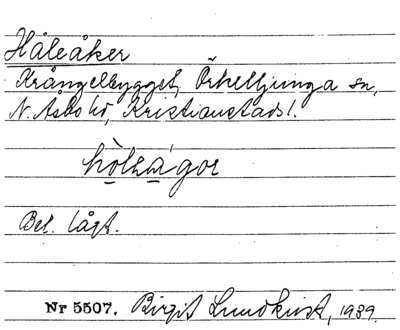 Håleåker
Krångelbygget, Örkelljunga sn,
N. Åsbo hd, Kristianstads l.
Bel. lågt.
Nr 5507. Birgit Lundkvist, 1939.